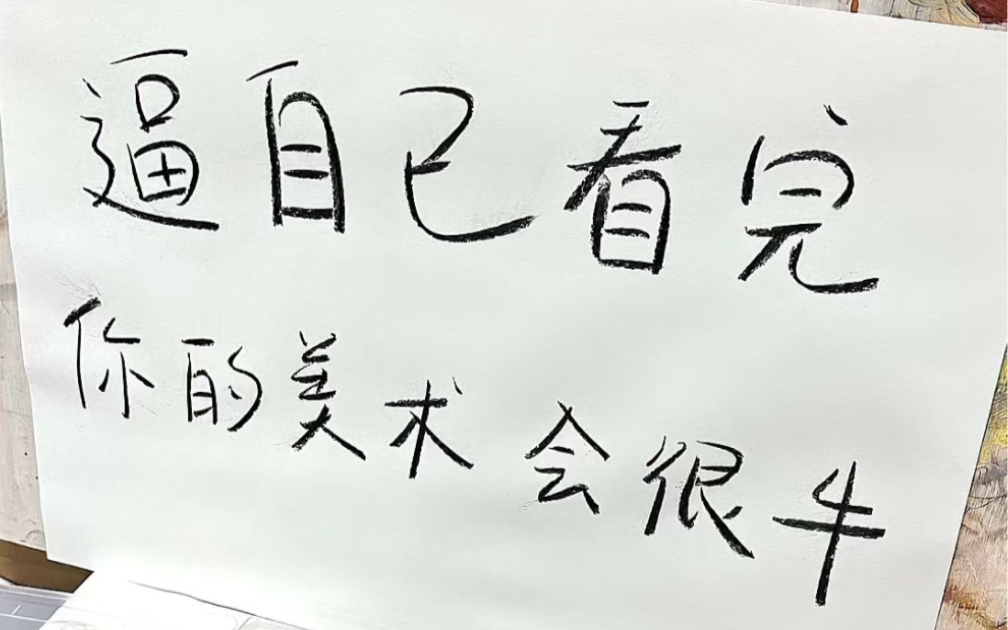 逼自己看完
你的美术会很牛